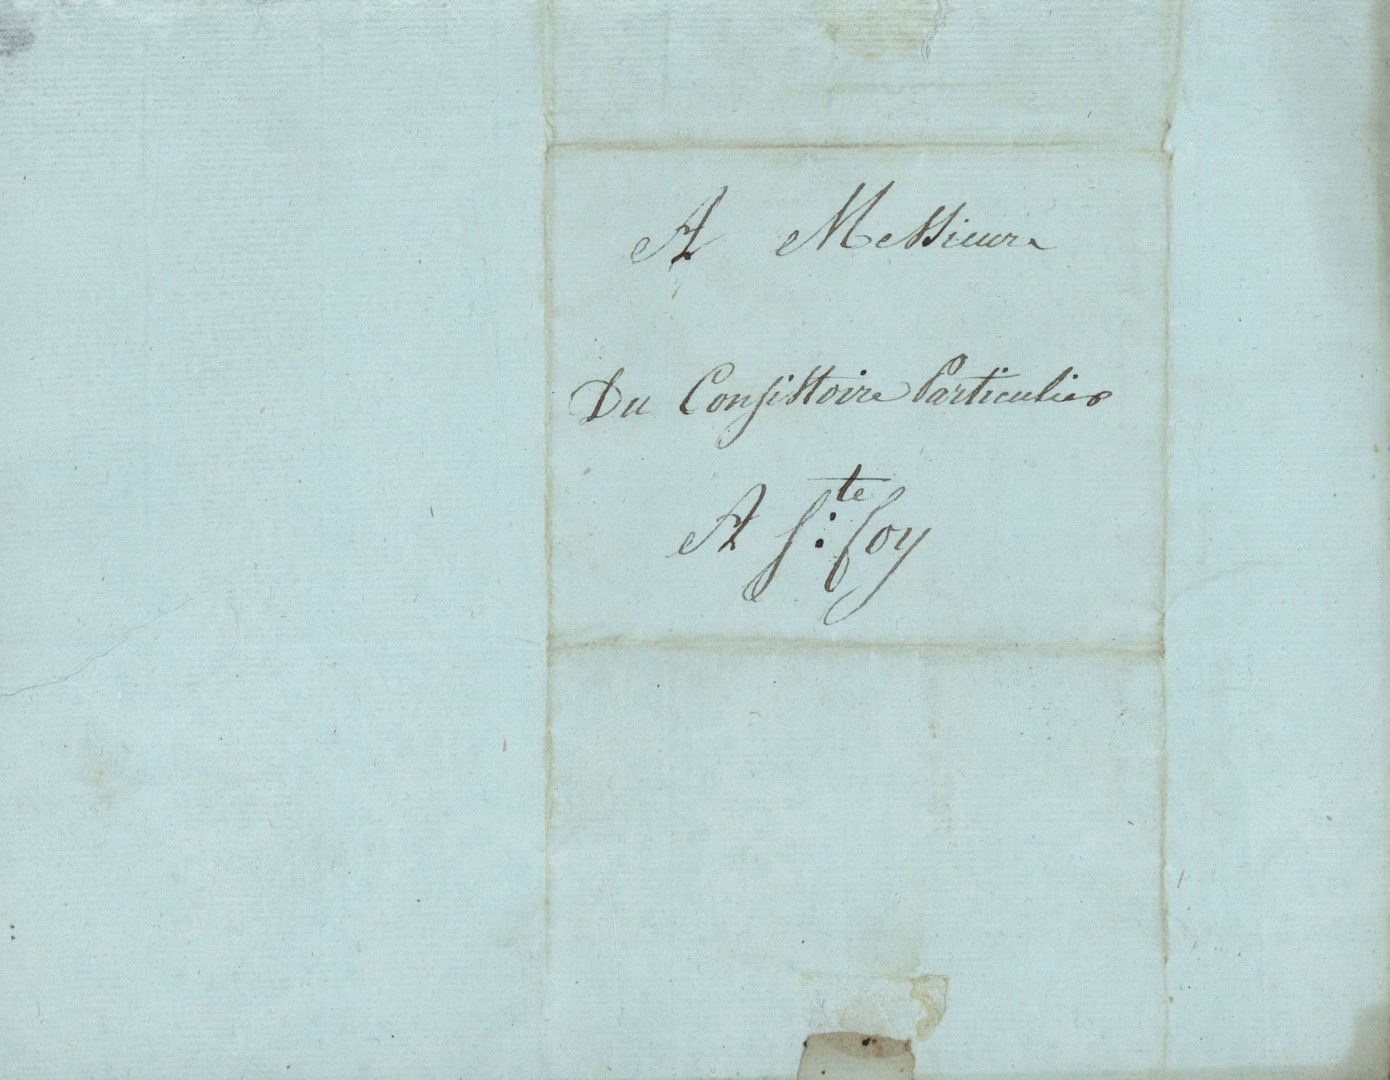 A Messieurs
Du Consistoire Particulier
A S:te foy